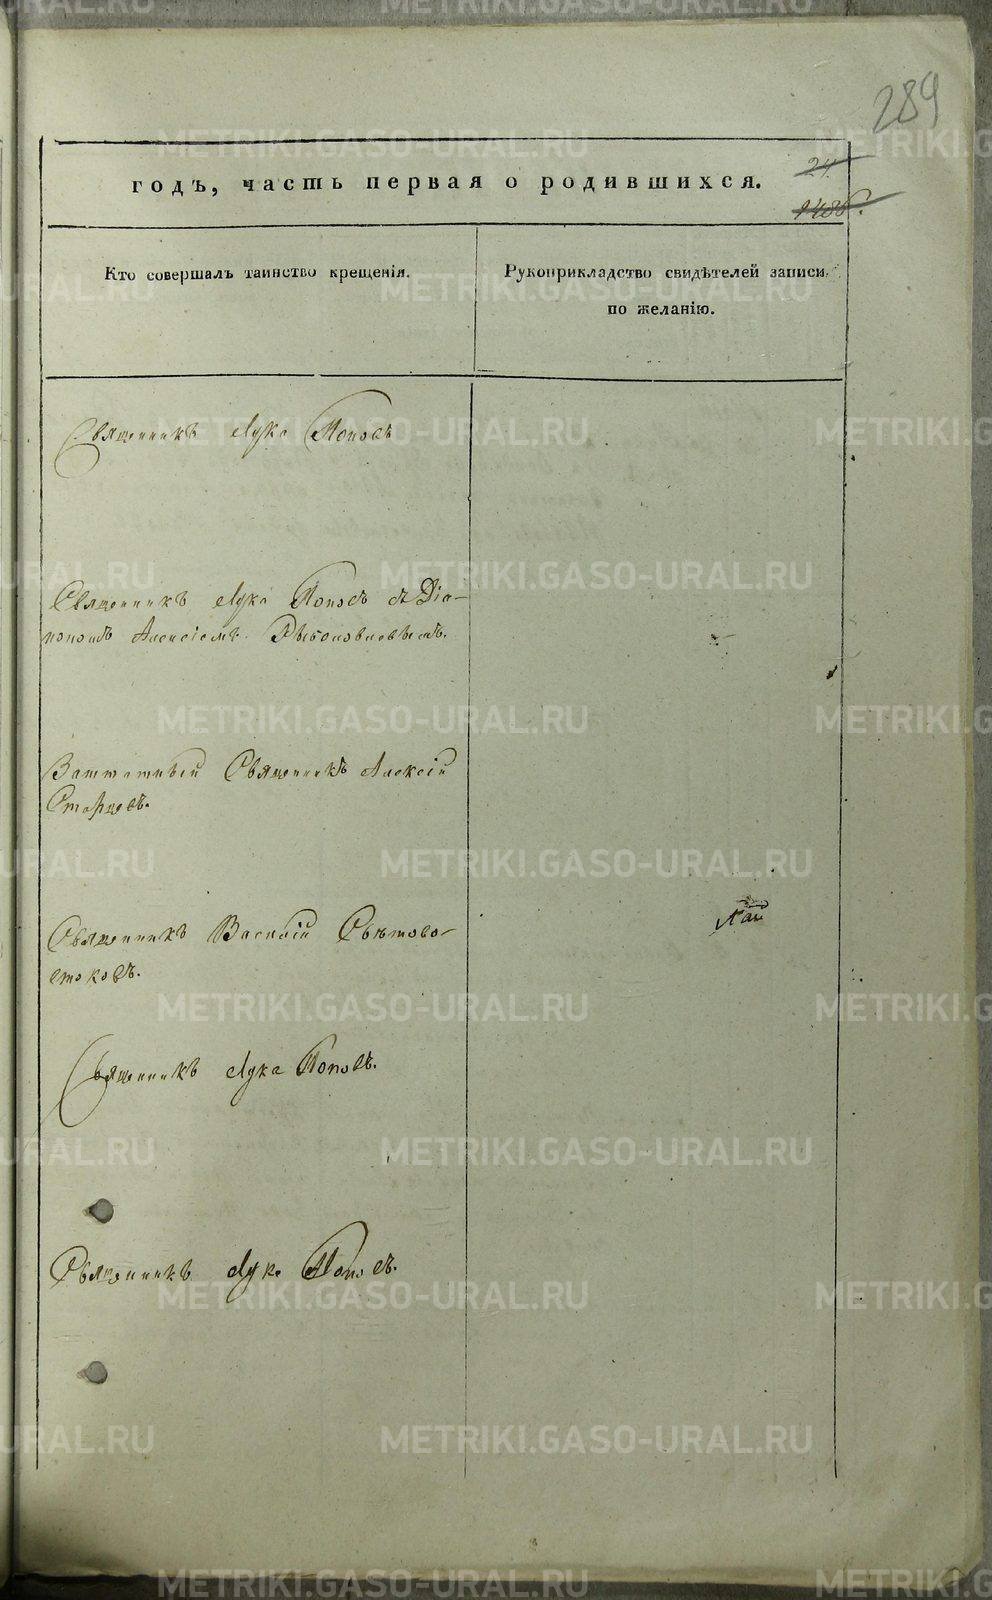 289
24.
годъ, часть первая о родившихся.
Кто совершалъ таинство крещенія.
Рукоприкладство свидѣтелей записи
по желанію.
Священникъ Лука Поповъ
Священникъ Лука Поповъ съ Діа-
кономъ Алексіемъ
Заштатный Священникъ Алексій
Старцевъ.
Священникъ Василій Свѣтово-
стоковъ.
Священникъ Лука Поповъ.
Священникъ Лука Поповъ.
METRIKI.GASO-URAL.RU